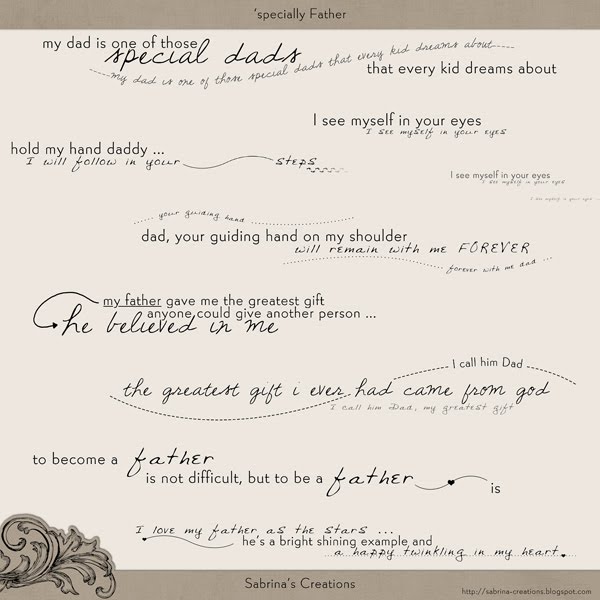 'specially Father
my dad is one of those
special dads
my dad is one of those special dads that every kid dreams about
that every kid dreams about
I see myself in your eyes
I see myself in your eyes
hold my hand daddy ...
I will follow in your steps
I see myself in your eyes
I see myself in your eyes
I see myself in your eyes ...
your guiding hand
dad, your guiding hand on my shoulder
will remain with me FOREVER
forever with me dad ...
my father gave me the greatest gift
anyone could give another person ...
he believed in me
I call him Dad
the greatest gift i ever had came from god
I call him Dad, my greatest gift
to become a father
is not difficult, but to be a father
is
I love my father as the stars ...
he's a bright shining example and
a happy twinkling in my heart.
Sabrina's Creations
http://sabrina-creations.blogspot.com